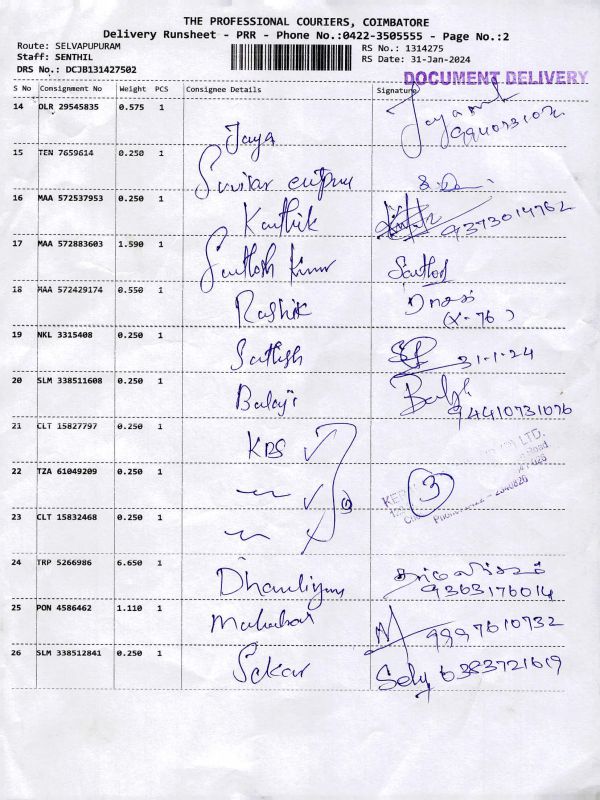 THE PROFESSIONAL COURIERS, COIMBATORE
Delivery Runsheet - PRR - Phone No.:0422-3505555 - Page No.:2
Route: SELVAPUPURAM
Staff: SENTHIL
DRS No.: DCJB131427502
RS No.: 1314275
RS Date: 31-Jan-2024
DOCUMENT DELIVERY
S No Consignment No Weight PCS Consignee Details Signature
14 DLR 29545835 0.575 1
Jaya
15 TEN 7659614 0.250 1
16 MAA 572537953 0.250 1
Karthik 9373014762
17 MAA 572883603 1.590 1
Santhosh Kumar Santhosh
18 MAA 572429174 0.550 1
Rashik
19 NKL 3315408 0.250 1
Sathish 31-1-24
20 SLM 338511608 0.250 1
Balaji 94410731076
21 CLT 15827797 0.250 1
KBS
22 TZA 61049209 0.250 1
3
23 CLT 15832468 0.250 1
24 TRP 5266986 6.650 1
9363176014
25 PON 4586462 1.110 1
9997610732
26 SLM 338512841 0.250 1
Sekar 6383721619